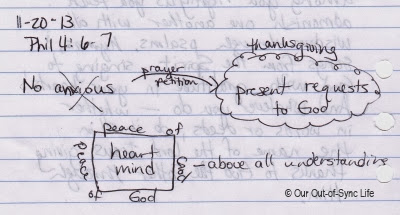 11-20-13
Phil 4:6-7
thanksgiving
No anxious
prayer
petition
present requests
to God
peace of
God
peace
of
God
heart
mind
- above all understanding
© Our Out-of-Sync Life